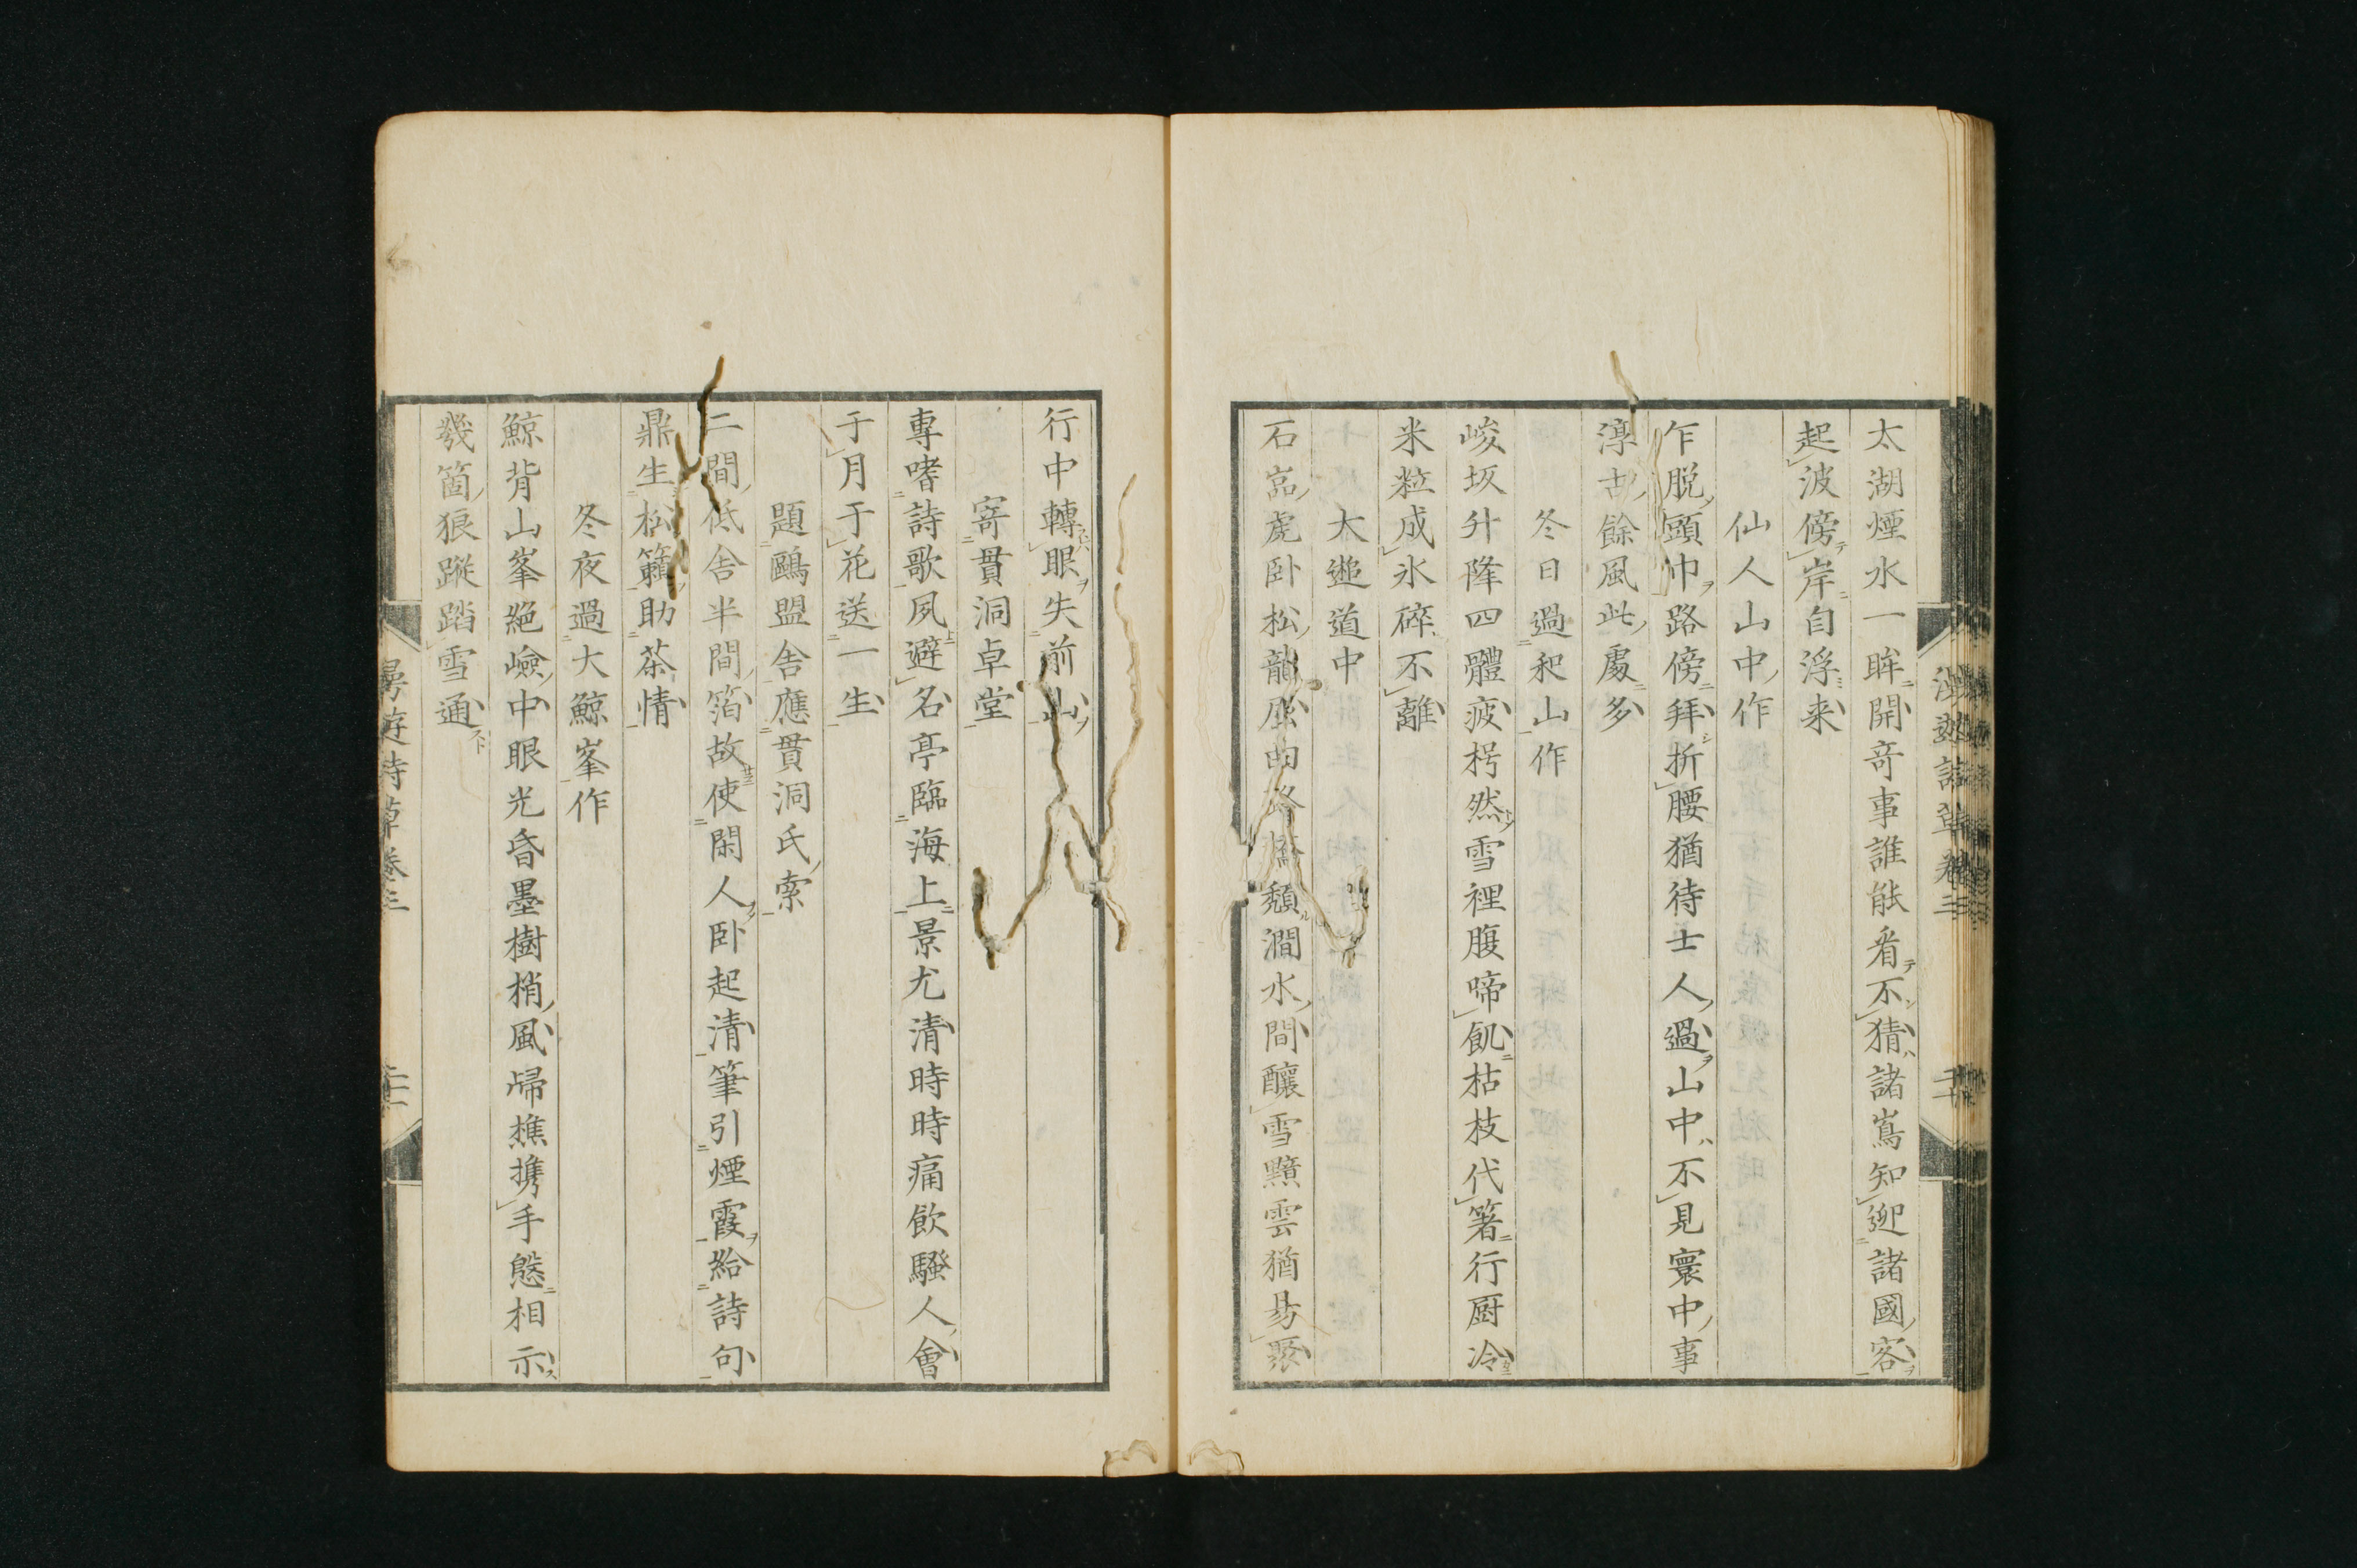 太湖煙水一眸開奇事誰能看不猜諸嶌知迎諸國客
起波傍岸自浮来
仙人山中作
乍脱頭巾路傍拜折腰猶待士人過山中不見寰中事
淳古餘風此處多
冬日過和山作
峻坂升降四體疲枵然雪裡腹啼飢枯枝代箸行厨冷
米粒成氷碎不離
大道中
石嵓虎卧松龍屈曲路橋頽澗水間釀雪黯雲猶易聚
行中轉眼失前山
寄貫洞卓堂
專嗜詩歌夙避名亭臨海上景尤清時時痛飲騷人會
于月于花送一生
題鷗盟舎應貫洞氏索
二間低舎半間箔故使閑人卧起清筆引煙霞給詩句
鼎生松籟助茶情
冬夜過大鯨峯作
鯨背山峯絶嶮中眼光昏墨樹梢風歸樵携手慇相示
幾箇狼蹤踏雪通
游詩草巻三